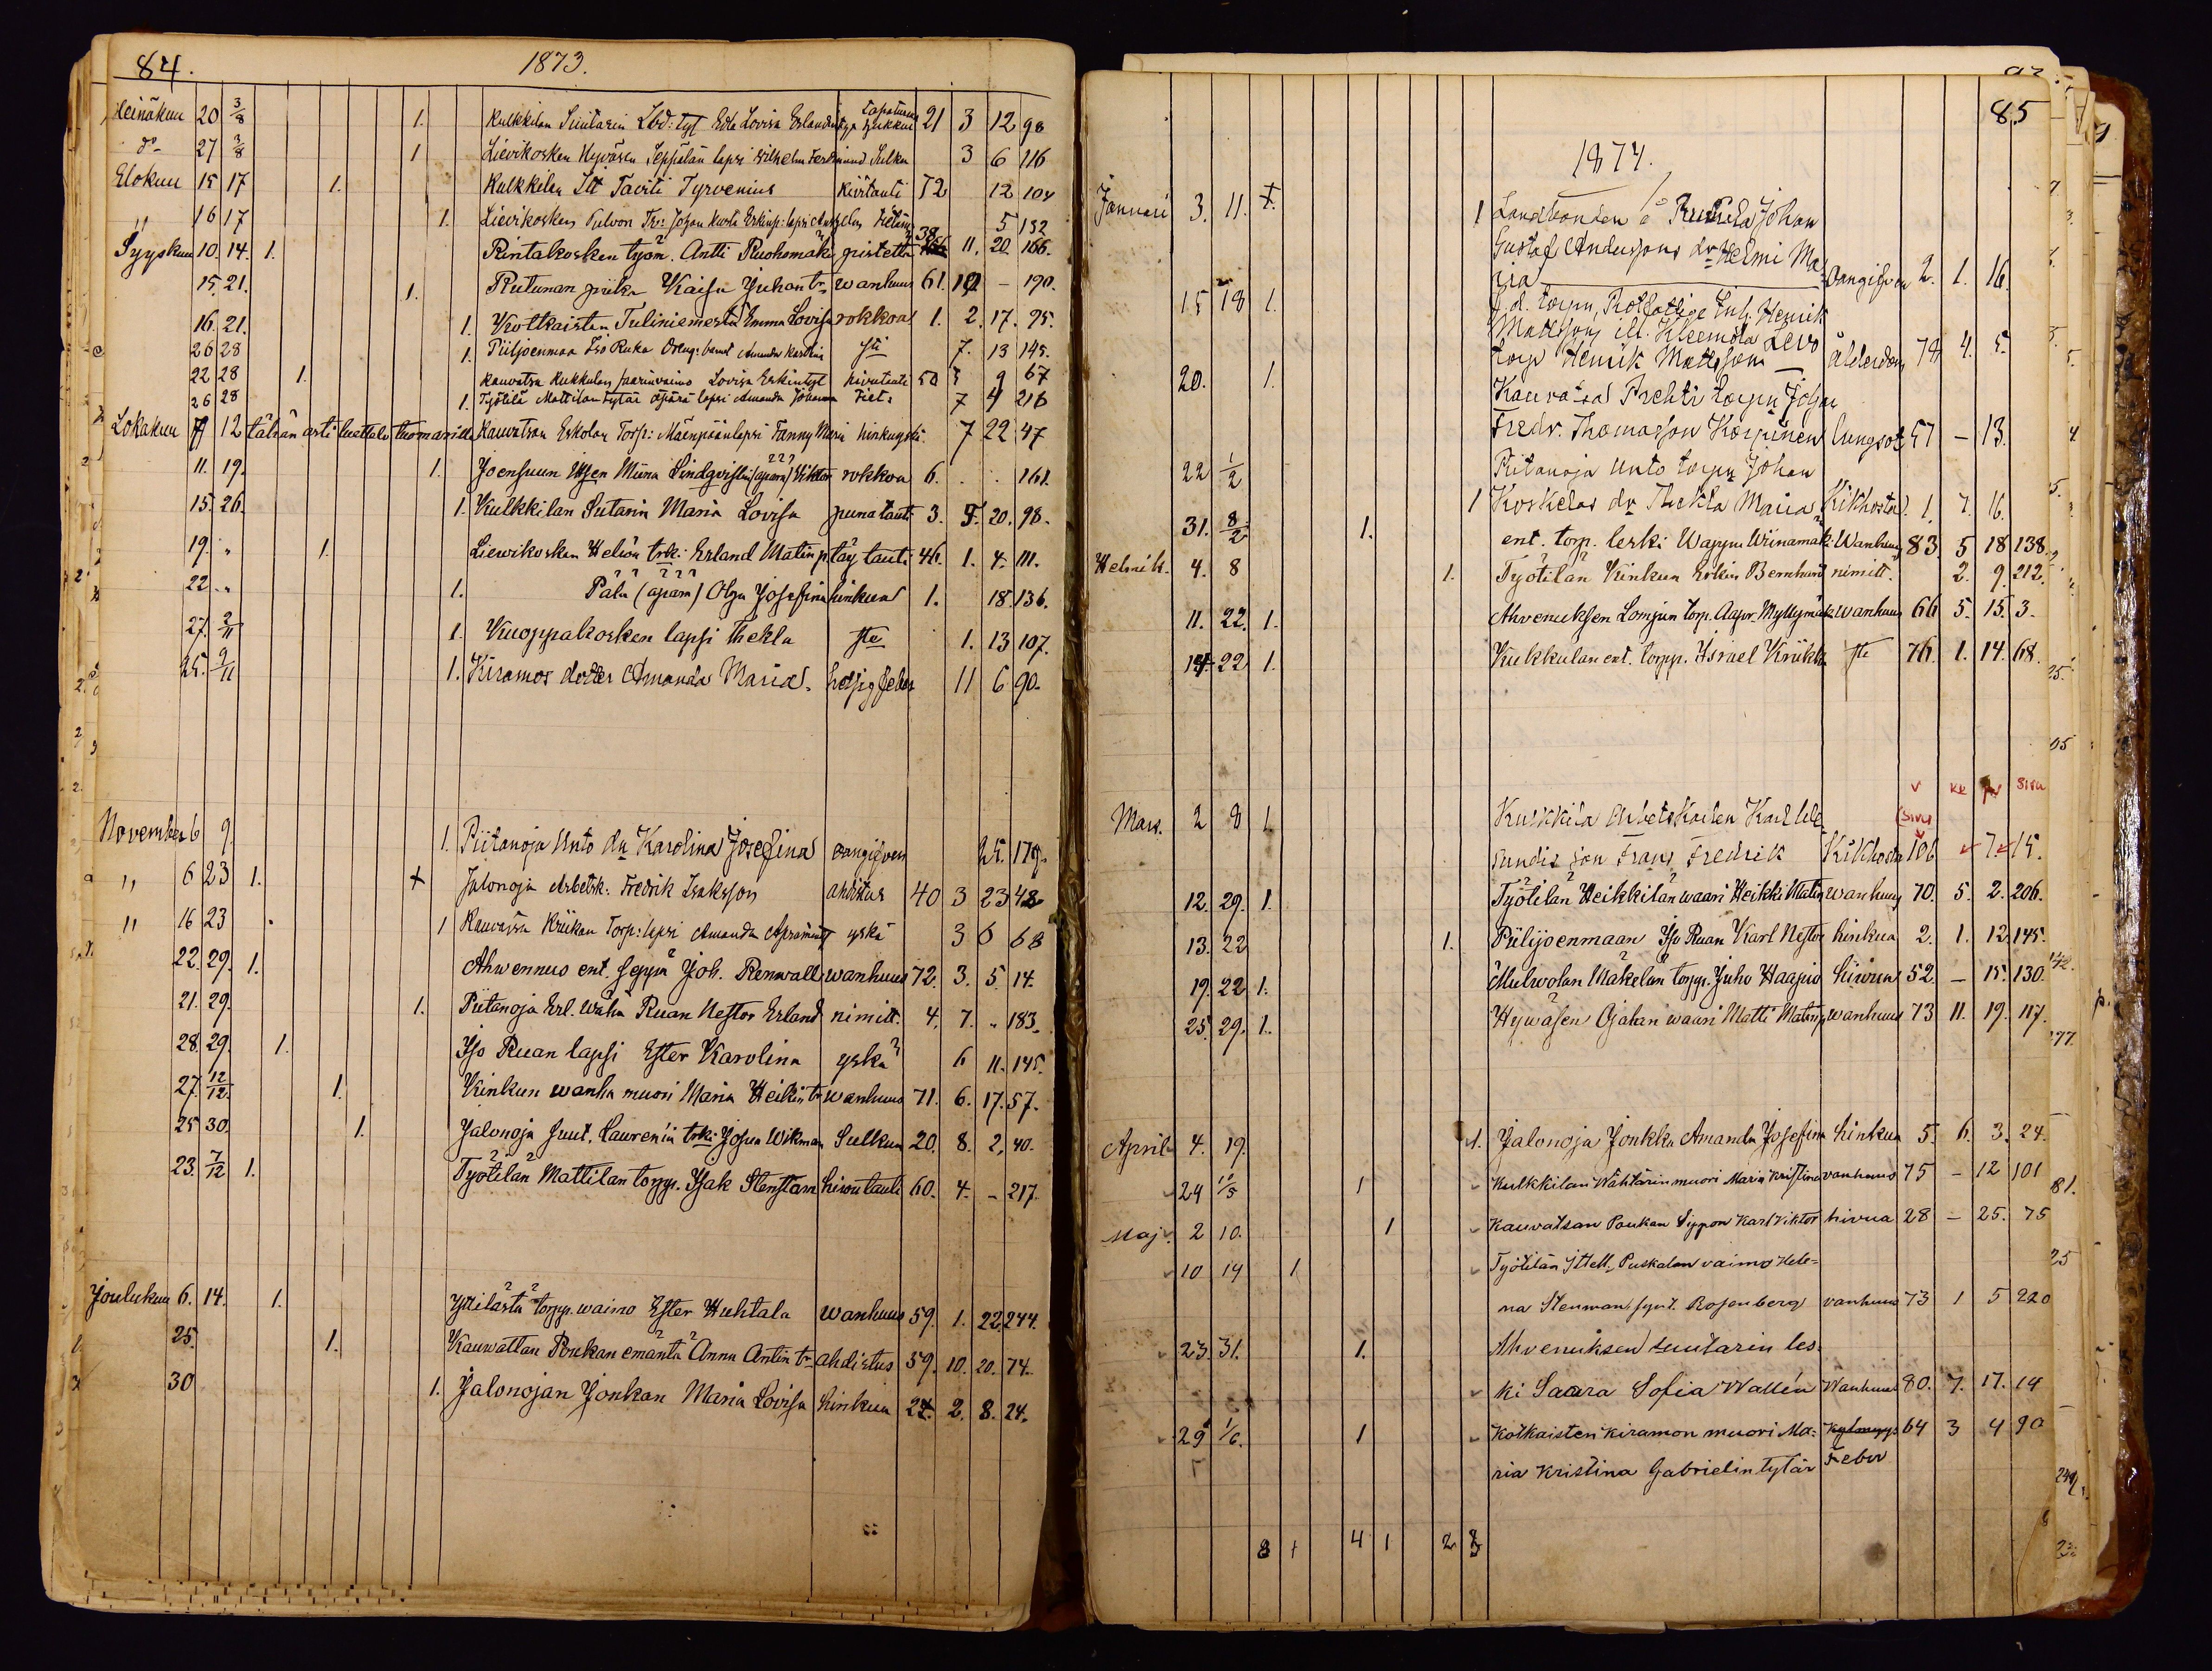 84.
1873.
Heinäkuu 20 3/8 1. Kulkkilan Suutarin Lbd: tyt Edla Lovisa Erlandintyn tapaturm hukkui 21 3 12 98
d:o 27 3/8 1 Lievikosken Hyvösen Seppälän lapsi Wilhelm Ferdinand Sulku 3 6 116
Elokuu 15 17 1. Kulkkilan Itt Taviti Tyrvenius kivitauti 72 12 104
" 16 17 1. Lievikosken Pulvon Trp: Johan Kustā Erkinp: lapsi 5 132
Syyskuu 10. 14. 1. Rintakosken työm. Antti Ruohomäki, pistettu 38 11. 20 166.
15. 21. 1. Rutunan piika Kaisa Juhantr. wanhuus 61. 10 – 190.
16. 21. 1. Kotkaisten Tuliniemestä Emma Lovisa rokkoa 1. 2. 17. 95.
26 28 1. Piiljoenmaa Iso Ruka Dreng: barnet Amanda Karolina st:i 7. 13 145.
22 28 1. Kauvatsa Kukkulan vaarinvaimo Lovisa Erkintyt kivutauti 50 3 9 67
26 28 1. Työtilä Mattilan tytär äpärä lapsi Amanda Johanna 7 4 216
Lokakuu 7 12 tähän asti luettelo thomarille Kauvatsan Eskolan Torp: Mäenpään lapsi Fanny Maria hinkuyskä 7 22 47
11. 19. 1. Joensuun Itsen Miina Lindqvistin (äpärä) Viktor rokkoa 6. . . 161.
15. 26. 1. Kulkkilan Sutarin Maria Lovisa punatauti 3. 5. 20. 98.
19. " 1. Liewikosken Heliön trk: Erland Matinp. täy tauti 46. 1. 4. 111.
22. " 1. Pälä (äpärä) Olga Josefina hinkua 1. 18. 136.
27. 2/11 1. Kuoppakosken lapsi Thekla st:e 1. 13 107.
25. 9/11 1. Kiramos dotter Amanda Maria hetsig feber 11 6 90.
November 6 9. 1. Piitanoja Unto dr Karolina Josefina oangifven 25. 179.
" 6 23 1. + Jalonoja Arbetsk: Fredrik Isaksson ahdistus 40 3 23 42
" 16 23 1 Kauvatsa Kriikan Torp: lapsi Amanda yskä 3 6 68
22. 29. 1. Ahwennus ent. seppä Joh. Renwall wanhuus 72. 3. 5. 14.
21. 29. 1. Piitanoja Erl. Wähä Ruan Nestor Erland nimitt. 4. 7. " 183.
28. 29. 1. Iso Ruan lapsi Ester Karolina yskä 6 11. 145.
27. 12/12. 1. Kinkun wanha muori Maria Heikintr. wanhuus 71. 6. 17. 57.
25 30. 1. Jalonoja Suut. Laurenin trk: Josua Wikman Sulkua 20. 8. 2. 40.
23. 7/12 1. Työtilän Mattilan torpp. Isak Stenstam kivutauti 60. 4. – 217.
Joulukuu 6. 14. 1. Yttilästä torpp. waimo Ester Huhtala wanhuus 59. 1. 22. 244.
25. 1. Kauwattan Poukan emäntä Anna Antintr. ahdistus 59. 10. 20. 74.
30 1. Jalonojan Jonkan Maria Lovisa hinkua 2. 8. 24.
85
1874.
Januari 3. 11. 1 Landbonden å Ruskila Johan
Gustaf Anderssons dr Helmi Ma-
ria oangifven 2. 1. 16.
15 18 1. f. d. torpn, Rotfattige Enkl. Henrik
Mattsson ifl. Kleemola Levo
torp Henrik Mattsson ålderdom 78 4. 5.
20. 1. Kauvatsa Prehti torpn Johan
Fredr. Thomasson Korpinen lungsot 57 – 13.
22 1/2 Piitanoja Unto torpn Johan
1 Koskelas dr Thekla Maria Kikhosta 1. 7. 16.
31. 8/2 1. ent. torp. leski Wappu Wiinamäki Wanhuus 83 5 18 138.
Helmik. 4. 8 1. Työtilän Kinkun Erkin Bernhard nimitt. 2. 9. 212.
11. 22. 1. Ahvenuksen Lompun torp. Aapr. Myllymäki wanhuus 66 5. 15. 3.
14. 22 1. Kukkulan ent. torpp. Israel Kriikka st:e 76. 1. 14. 68.
v kk pv sivu
Mars. 2 8 1. Kuskkila Arbetskarlen Karl
son Frans Fredrik Kikhosta 7. 15.
12. 29. 1. Työtilän Heikkilän waari Heikki Matinp wanhuus 70. 5. 2. 206.
13. 22 1. Piilijoenmaan Iso Ruan Karl Nestor hinkua 2. 1. 12. 145.
19. 22 1. Mulwolan Mäkelän torpp. Juho Haapio kiwua 52. – 15. 130.
25. 29. 1. Hywäsen Ojalan waari Matti Matinp wanhuus 73 11. 19. 117.
April 4. 19. 1. Jalonoja Jonkka Amanda Josefina hinkua 5. 6. 3. 24.
24 11/5 1 Kulkkilan Wähtärin muori Maria Kristina vanhuus 75 – 12 101
Maj 2 10. 1 Kauvatsan Poukan Sippon Karl Viktor kivua 28 – 25. 75
10 14 1 Työtilän Ittell. Puskalan vaimo Hele-
na Stenman, synt. Rosenberg vanhuus 73 1 5 220
23. 31. 1. Ahvenuksen suutarin les-
ki Saara Sofia Wallén Wanhuus 80. 7. 17. 14
29 1/6. 1 Kotkaisten Kiramon muori Ma-
ria Kristina Gabrielintytär Feber 64 3 4 90
8 1 4 1 2 8